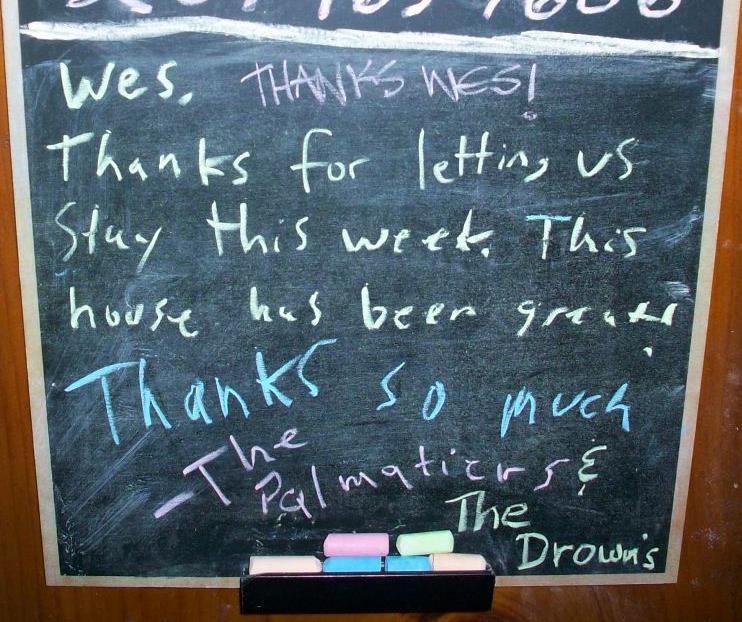 Wes. THANKS WES!
Thanks for letting us
Stay this week. This
house has been great!
Thanks so much
-The
Palmatiers &
The
Drown's